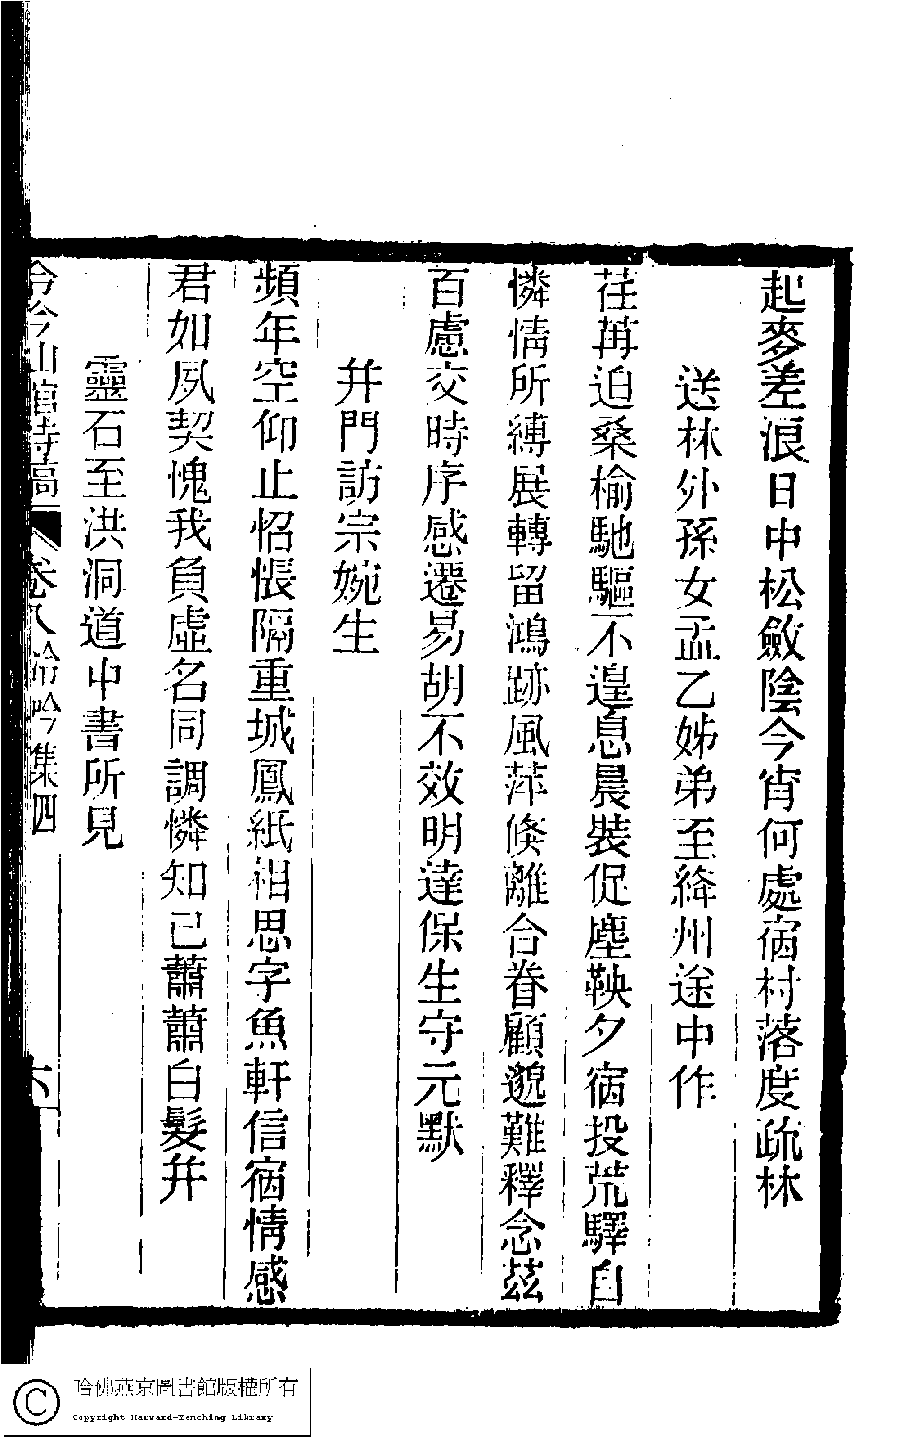 起麥差浪日中松斂陰今宵何處宿村落度疏林
送林外孫女孟乙姊弟至絳州途中作
荏苒迫桑榆馳驅不遑息晨裝促塵鞅夕宿投荒驛自
憐情所縛展轉留鴻跡風萍倏離合眷顧邈難釋念茲
百慮交時序感遷易胡不效明達保生守元默
并門訪宗婉生
頻年空仰止怊悵隔重城鳳紙相思字魚軒信宿情感
君如夙契愧我負虛名同調憐知已蕭蕭白髮并
靈石至洪洞道中書所見
冷吟仙館詩稿 卷八冷吟集四 六
哈佛燕京圖書館版權所有
Copyright Harvard-Yenching Library